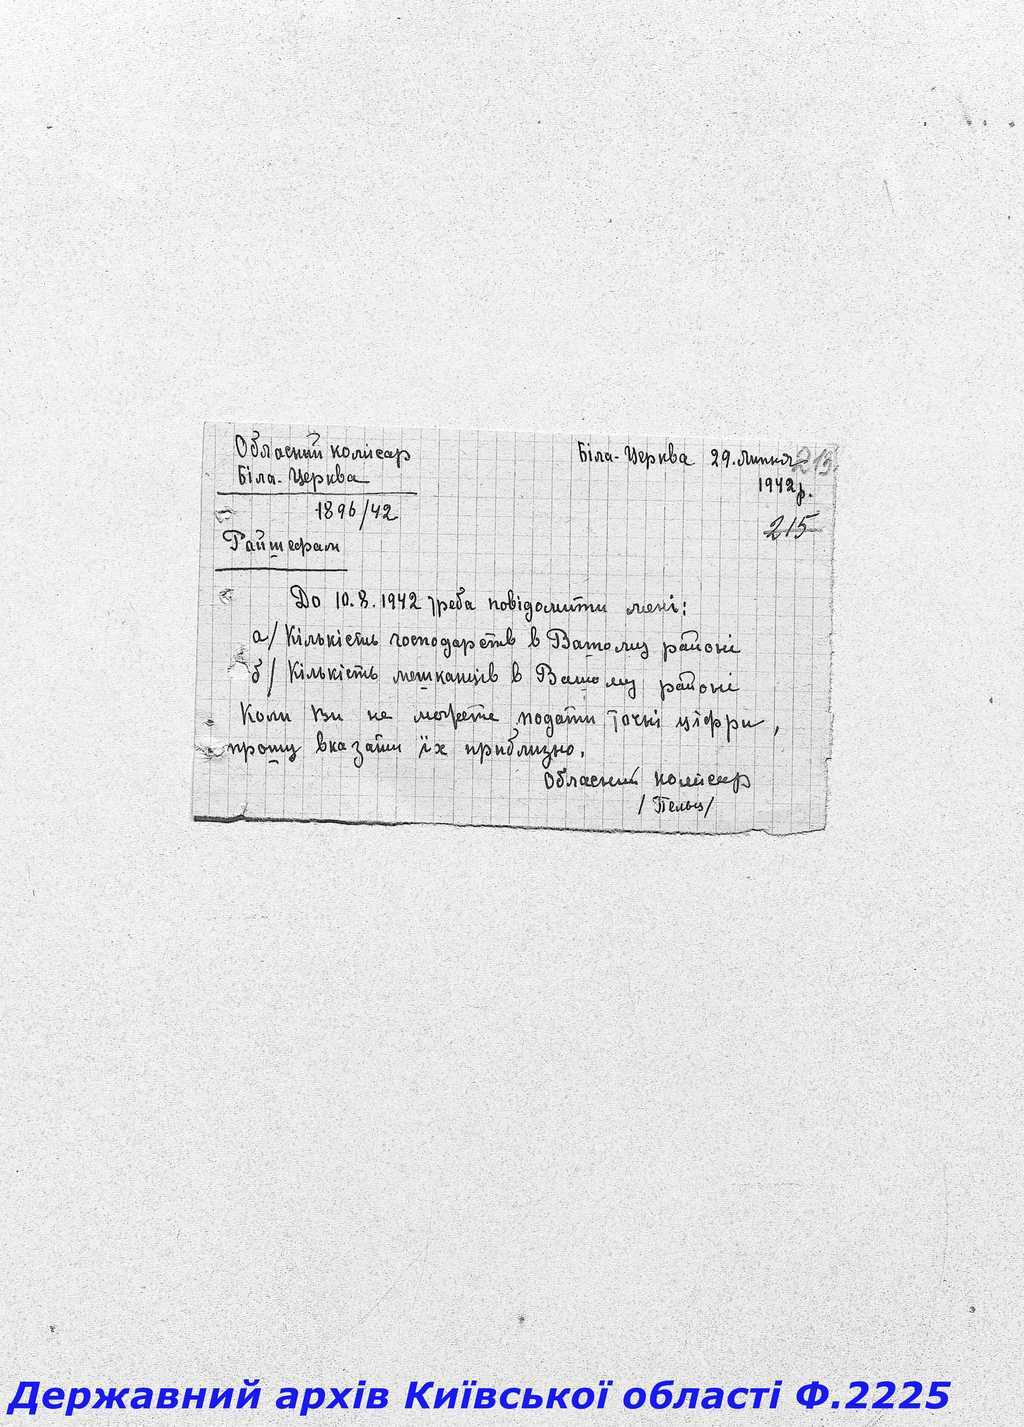 Обласний комісар
Біла-Церква
Біла-Церква 29. липня
1942 р.
1896/42
215
Райшефам
До 10.8.1942 треба повідомити мені:
а/ Кількість господарств в Вашому районі
б/ Кількість мешканців в Вашому районі
Коли ви не можете подати точні цифри,
прошу вказати їх приблизно.
Обласний комісар
/Пельц/
Державний архів Київської області Ф.2225